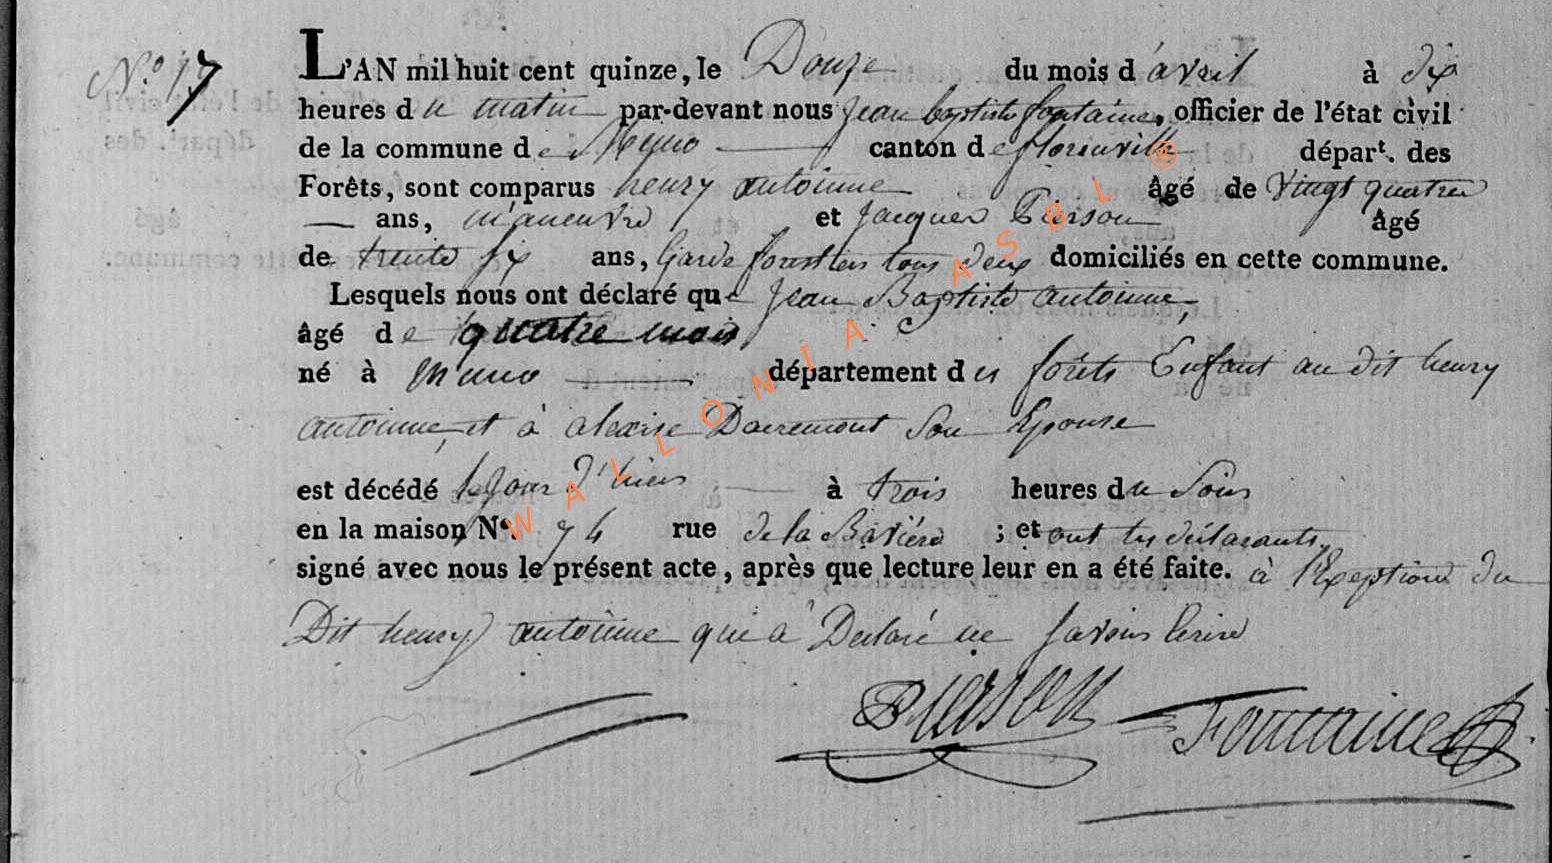 N.o 17
L'AN mil huit cent quinze, le Douze du mois d'avril à dix
heures du matin par-devant nous Jean baptiste fontaine, officier de l'état civil
de la commune de Muno canton de florenville départ. des
Forêts, sont comparus henry antoinne âgé de vingt quatre
ans, maneuvre et Jacques Pierson âgé
de trente six ans, Garde forestier tous deux domiciliés en cette commune.
Lesquels nous ont déclaré que Jean Baptiste antoinne,
âgé de quatre mois
né à Muno département des forêts Enfant au dit henry
antoinne, et à alexise Dacremont Son Epouse
est décédé le Jour d'hier à trois heures du Soir
en la maison No. 74 rue de la Baviere ; et ont les déclarants
signé avec nous le présent acte, après que lecture leur en a été faite. à l'Exeption du
Dit henry antoinne que a Declaré ne Savoir Ecrire
Pierson Fontaine
WALLONIA ASBL ®